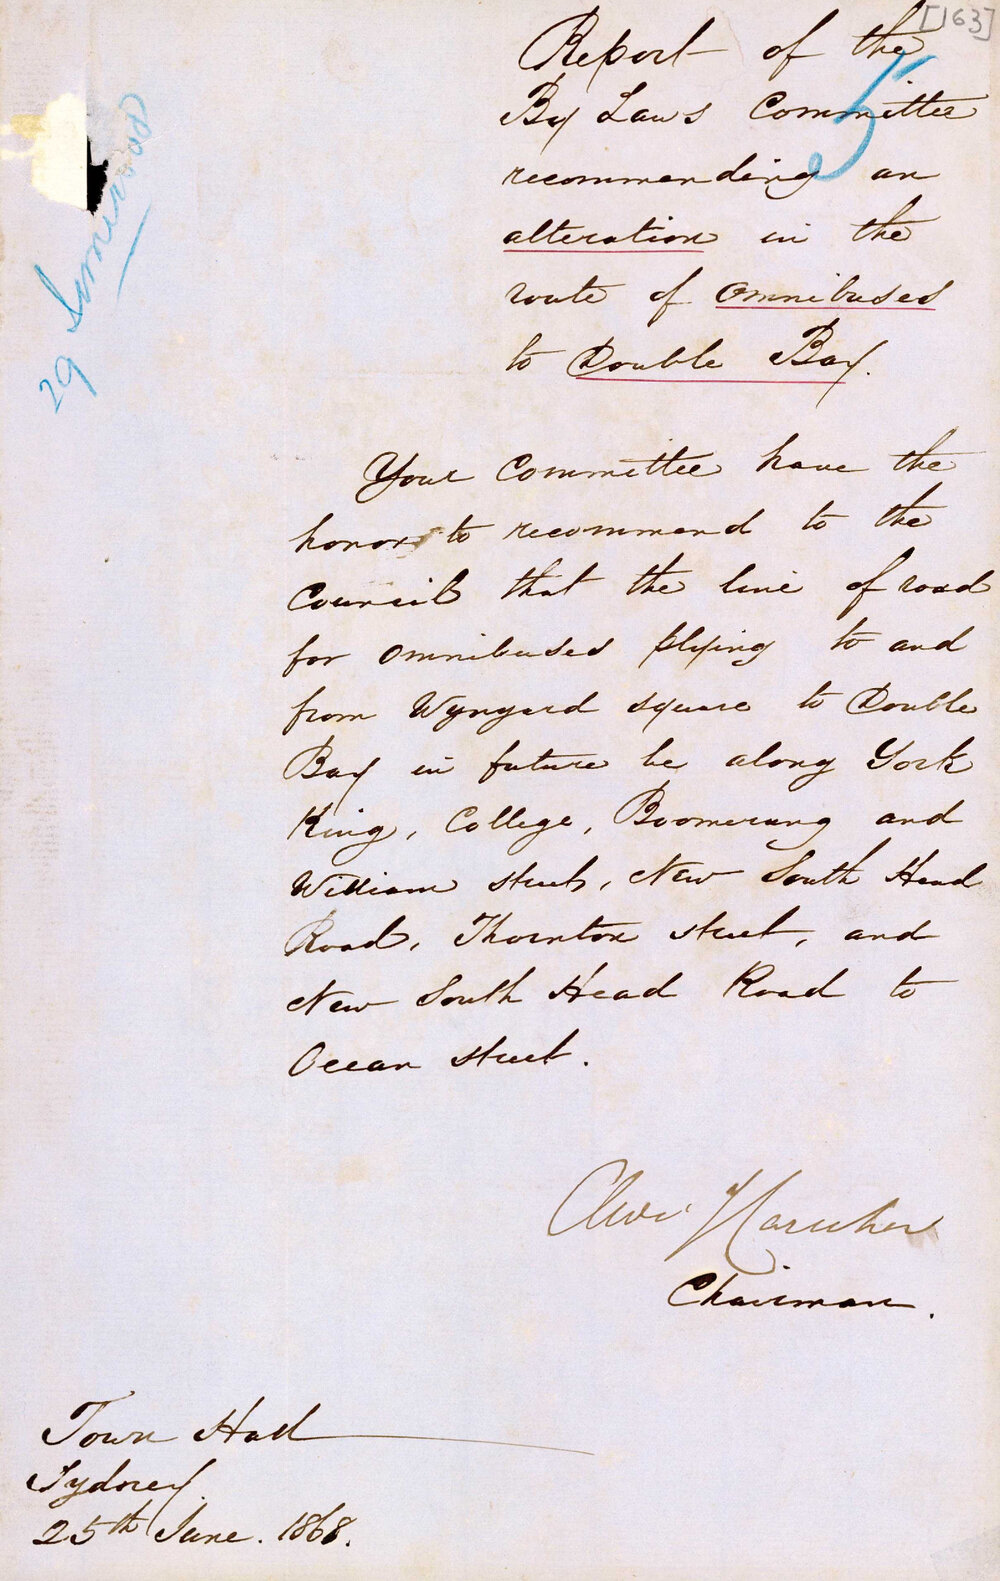 [163]
Report of the
By Laws Committee
recommending an
alteration in the
route of Omnibuses
to Double Bay.
5
29
Your Committee have the
honor to recommend to the
Council that the line of road
for omnibuses plying to and
from Wynyard square to Double
Bay in future be along York
King, College, Boomerang and
William streets, New South Head
Road, Thornton street, and
New South Head Road to
Ocean street.
Chairman.
Town Hall
Sydney.
25th June. 1868.